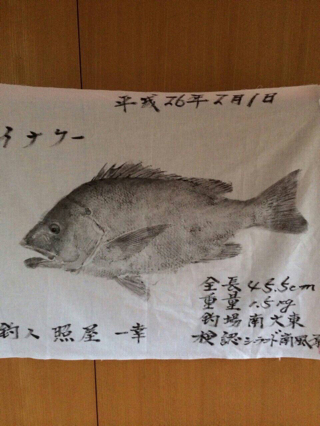 平成26年2月1日
イナクー
全長 45.5cm
重量 1.5kg
釣場 南大東
釣人 照屋 一幸
検認